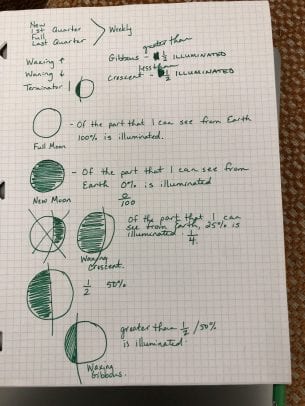 New
1st Quarter
Full
Last Quarter
Weekly
Waxing ↑
Waning ↓
Terminator
greater than
Gibbous - ½ ILLUMINATED
less than
Crescent - ½ ILLUMINATED
- Of the part that I can see from Earth
100% is illuminated.
Full Moon
- Of the part that I can see from
Earth 0% is illuminated
0/100
New Moon
Of the part that I can
see from Earth, 25% is
illuminated. 1/4.
Waxing
Crescent.
1/2 50%
greater than ½ /50%
is illuminated.
Waxing
Gibbous.